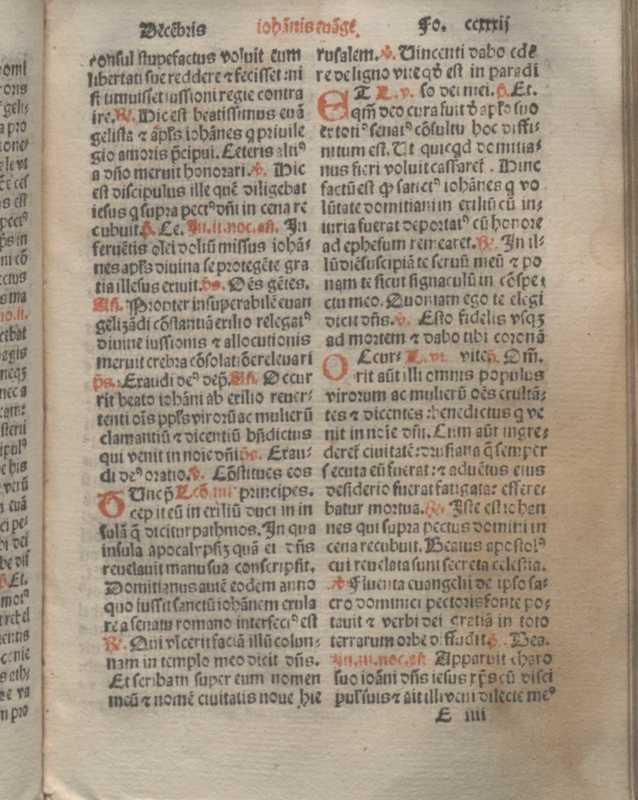 Decẽbris iohãnis euãge. Fo. ccxxxij
consul stupefactus voluit eum
libertati sue reddere ⁊ fecisset: ni
si timuisset iussioni regie contra
ire. ℟. Hic est beatissimus euã
gelista ⁊ apl̃s iohãnes q̃ priuile
gio amoris p̃cipui. Ceteris altiꝰ
a dño meruit honorari. ℣. Hic
est discipulus ille quẽ diligebat
iesus q̃ supra pectꝰ dñi in cena re
cubuit. p̃. Ce. In.ii.noc.añ. In
feruẽtis olei doliũ missus iohã-
nes apl̃s diuina se protegẽte gra
tia illesus exiuit. p̃s. Oẽs gẽtes.
Añ. Propter insuperabilẽ euan
gelizãdi cõstantiã exilio relegatꝰ
diuine iussionis ⁊ allocutionis
meruit crebra cõsolatiõe releuari
p̃s. Exaudi deꝰ dep̃. Añ. Occur
rit beato iohãni ab exilio reuer-
tenti oĩs pp̃ls virorũ ac mulierũ
clamantiũ ⁊ dicentiũ bñdictus
qui venit in noĩe dñi p̃s. Exau-
di deꝰ oratio. ℣. Cõstitues eos
Tuncp̃ Lcõ iiij principes.
cepit eũ in exiliũ duci in in
sulã q̃ dicitur pathmos. In qua
insula apocalypsiʒ quã ei dñs
reuelauit manu sua conscripsit.
Domitianus autẽ eodem anno
quo iussit sanctũ iohãnem exula
re a senatu romano interfectꝰ est
℟. Qui vicerit faciã illũ colun-
nam in templo meo dicit dñs.
Et scribam super eum nomen
meũ ⁊ nomẽ ciuitatis noue hie
rusalem. ℣. Vincenti dabo ede
re de ligno vite qd̃ est in paradi
ET L. v. so dei mei. p̃. Et.
qm̃ deo cura fuit d̃ apl̃o suo
ex totiꝰ senatꝰ cõsultu hoc diffi-
nitum est. Ut quicqd̃ domitia-
nus fieri voluit cassaret̃. Hinc
factũ est ꝙ sanctꝰ iohãnes q̃ vo
lũtate domitiani in exiliũ cũ in-
iuria fuerat deportatꝰ cũ honore
ad ephesum remearet. ℟. In il-
lũ diẽ suscipiã te seruũ meũ ⁊ po
nam te sicut signaculũ in cõspe-
ctu meo. Quoniam ego te elegi
dicit dñs. ℣. Esto fidelis vsqʒ
ad mortem ⁊ dabo tibi coronã
OCcur- L. vi. vite p̃. Dm̃.
rit aũt illi omnis populus
virorum ac mulierũ oẽs exultã-
tes ⁊ dicentes: benedictus q̃ ve
nit in noĩe dñi. Cum aũt ingre-
deret̃ ciuitatẽ: drusiana q̃ semper
secuta eũ fuerat: ⁊ aduẽtus eius
desiderio fuerat fatigata: effere-
batur mortua. ℟. Iste est iohan
nes qui supra pectus domini in
cena recubuit. Beatus apostolꝰ
cui reuelata sunt secreta celestia.
℣. Fluenta euangelii de ipso sa-
cro dominici pectoris fonte po-
tauit ⁊ verbi dei gratiã in toto
terrarum orbe diffudit p̃. Bea.
In.iii.noc.añ Apparuit charo
suo ioãni dñs iesus xp̃s cũ disci
pulis suis ⁊ ait illi veni dilecte meꝰ
E iiii